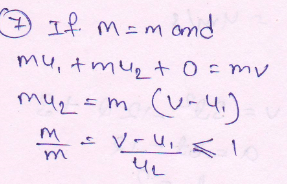 ⑦ If m = m and
mu₁ + mu₂ + 0 = mv
mu₂ = m (v - u₁)
m/m = v - u₁/u₂ ≤ 1